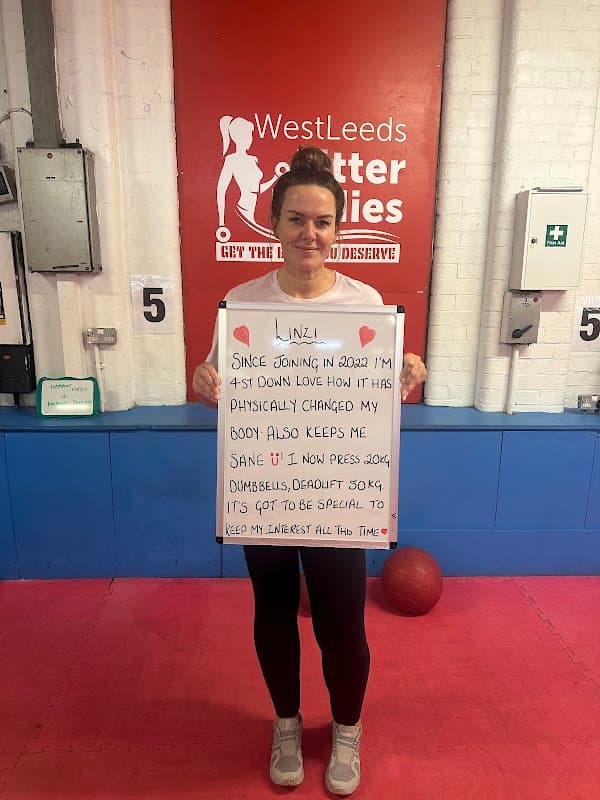 WestLeeds
GET THE
DESERVE
First Aid
5
5
LINZI
SINCE JOINING IN 2022 I'M
4-ST DOWN LOVE HOW IT HAS
PHYSICALLY CHANGED MY
BODY. ALSO KEEPS ME
SANE Ü! I NOW PRESS 20KG
DUMBBELLS, DEADLIFT 50KG
IT'S GOT TO BE SPECIAL TO
KEEP MY INTEREST ALL THIS TIME